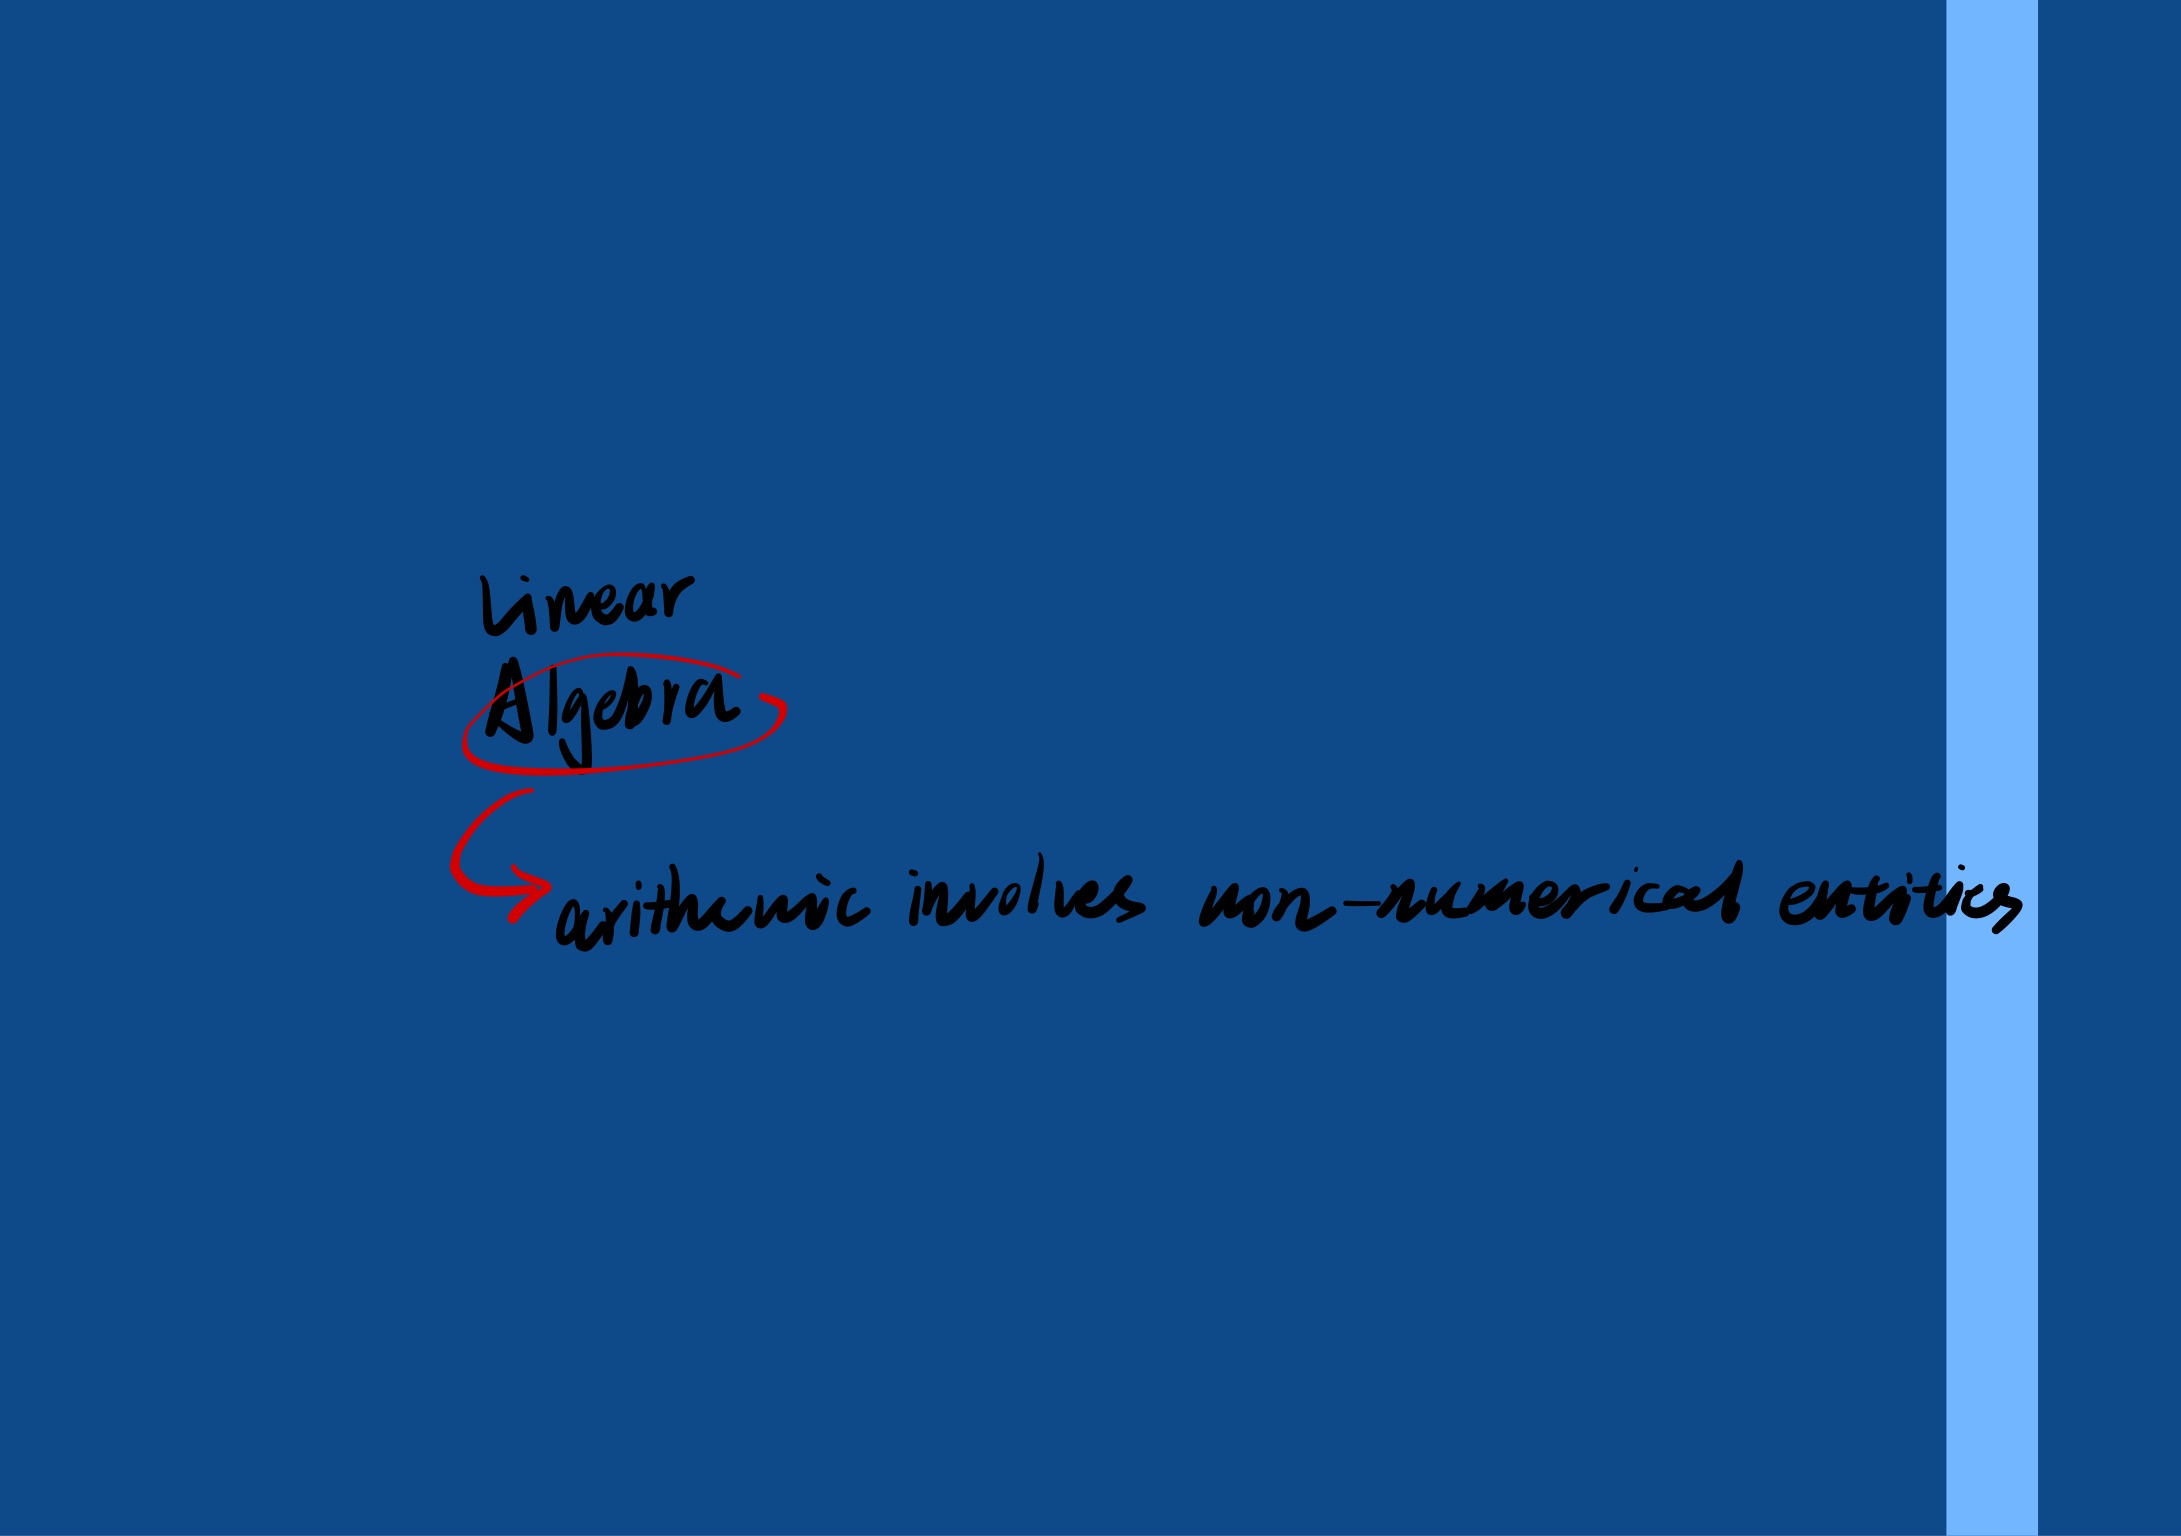 Linear
Algebra
arithemic involves non-numerical entities